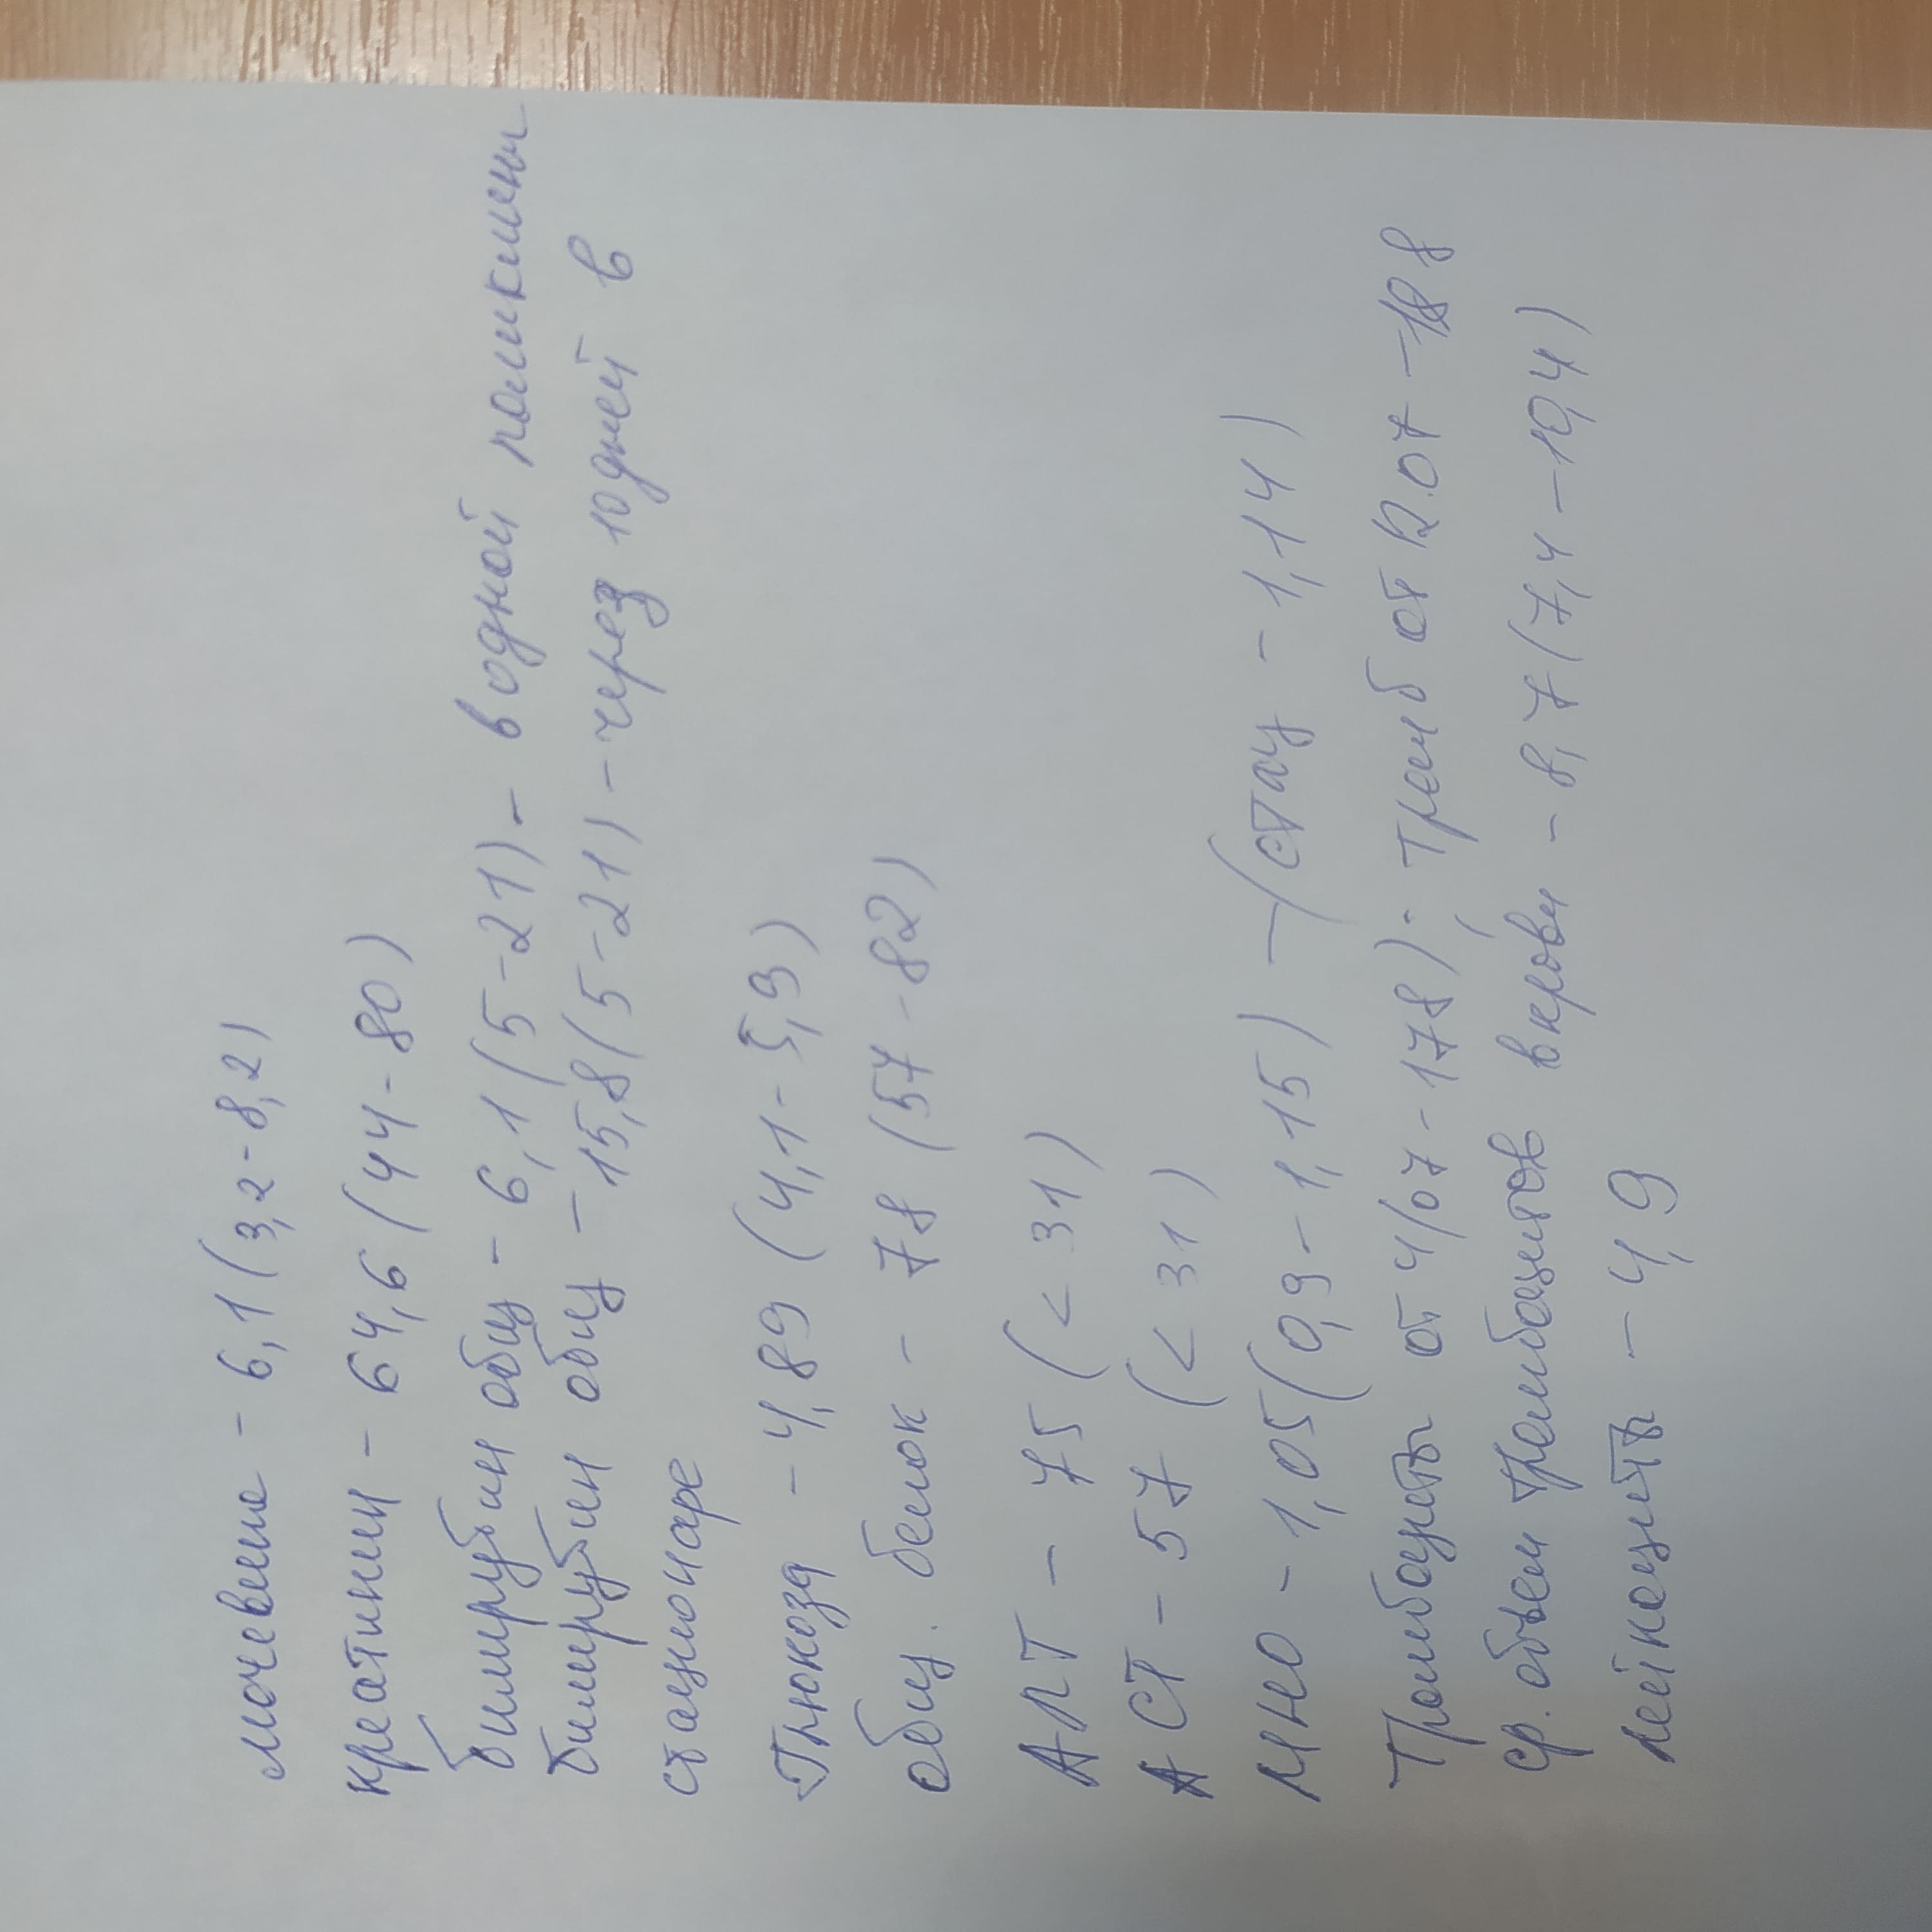 мочевина - 6,1 (3,2-8,2)
креатинин - 64,6 (44-80)
билирубин общ - 6,1 (5-21) - в одной поликлин
билирубин общ - 15,8 (5-21) - через 10 дней в
стационаре
Глюкоза - 4,89 (4,1-5,9)
общ. белок - 78 (57-82)
АЛТ - 75 (<31)
АСТ - 57 (<31)
МНО - 1,05 (0,9-1,15) - (стац - 1,14)
Тромбоциты от 4/07 - 178); Тромб от 12.07 - 188
ср. объем тромбоцитов в крови - 8,7 (7,4-10,4)
лейкоциты - 4,9